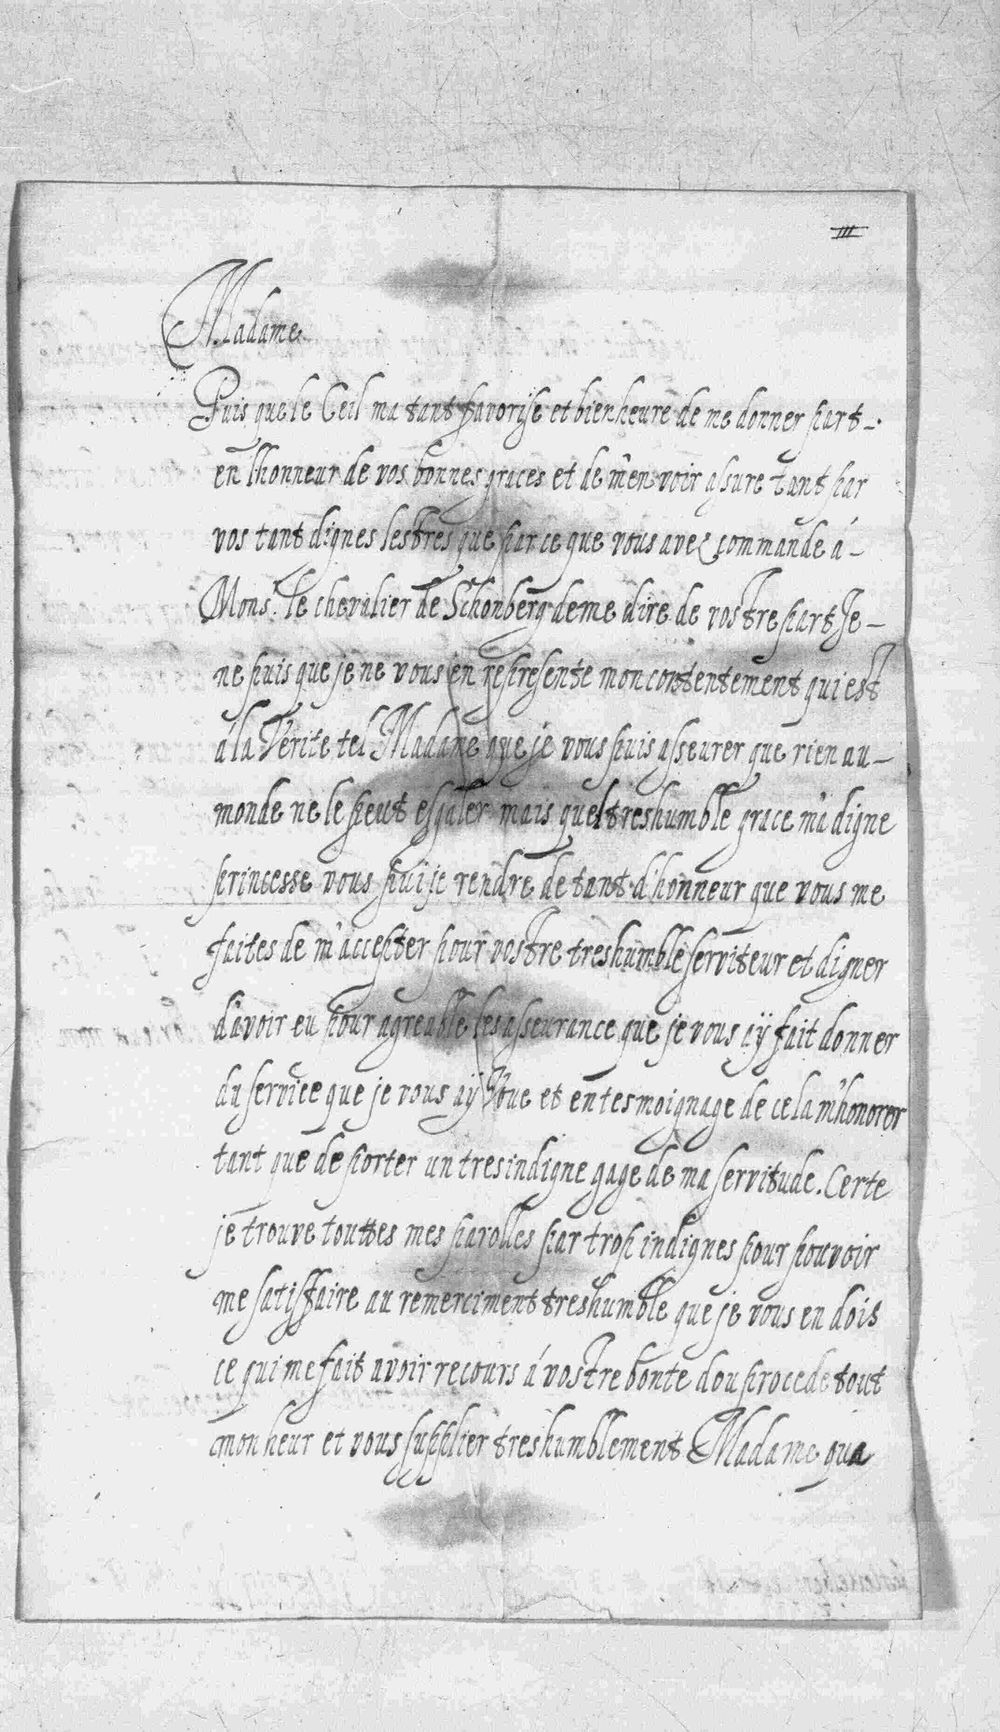 III
Madame
Puis que le Ceil ma tant favorise et bienheure de me donner part -.
en lhonneur de vos bonnes graces et de m'en voir assure tant par
vos tant dignes lestres que par ce que vous avez commande á -
Mons.r le chevalier de Schonberg de me dire de vostre part Je -
ne puis que je ne vous en represente mon contentement qui est
á la Verite tel Madame que je vous puis asseurer que rien au -
monde ne le peut esgaler mais quel treshumble grace m'a digne
princesse vous pui je rendre de tant d'honneur que vous me
faites de m'accepter pour vostre treshumble serviteur et digner
d'avoir eu pour agreable les asseurance que je vous aÿ fait donner
du service que je vous aÿ Voue et en tesmoignage de cela m'honorer
tant que de porter un tresindigne gage de ma servitude. Certe
je trouve touttes mes parolles par trop indignes pour pouvoir
me satisfaire au remerciment treshumble que je vous en dois
ce qui me fait avoir recours á vostre bonte dou procede tout
mon heur et vous supplier treshumblement Madame qua